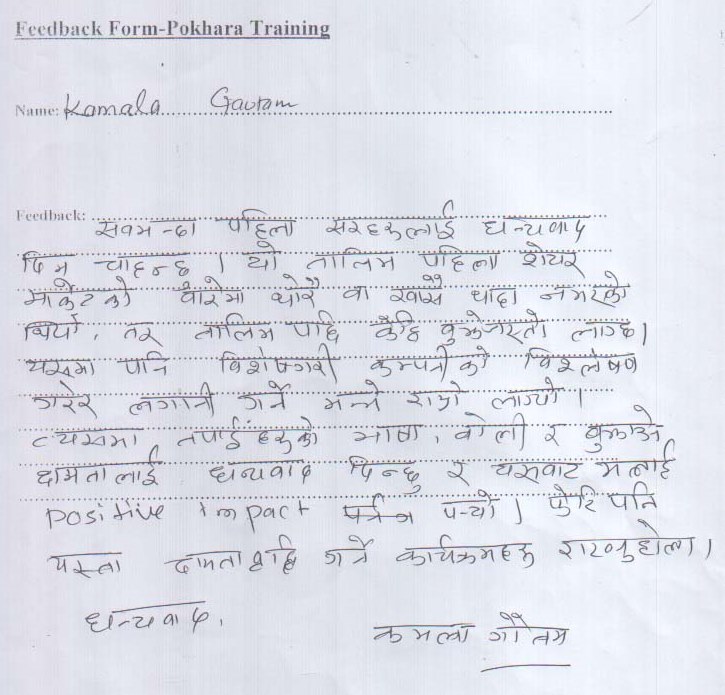 Feedback Form-Pokhara Training
Name: Kamala Gautam
Feedback:
सवभन्दा पहिला सरहरुलाई धन्यवाद
दिन चाहन्छु । यो तालिम पहिला शेयर
मार्केटको बारेमा थोरै वा खासै थाहा नभएको
थियो, तर तालिम पछि केहि बुझेजस्तो लाग्छ।
यसमा पनि विशेषगरी कम्पनीको विश्लेषण
गरेर लगानी गर्ने भन्ने राम्रो लाग्यो ।
त्यसमा तपाईहरुको भाषा, बोली र बुझाउने
क्षमतालाई धन्यवाद दिन्छु र यसवाट मलाई
positive impact पर्यो । फेरि पनि
यस्ता क्षमतावृद्धि गर्ने कार्यक्रमहरु राख्नुहोला।
धन्यवाद,
कमला गौतम